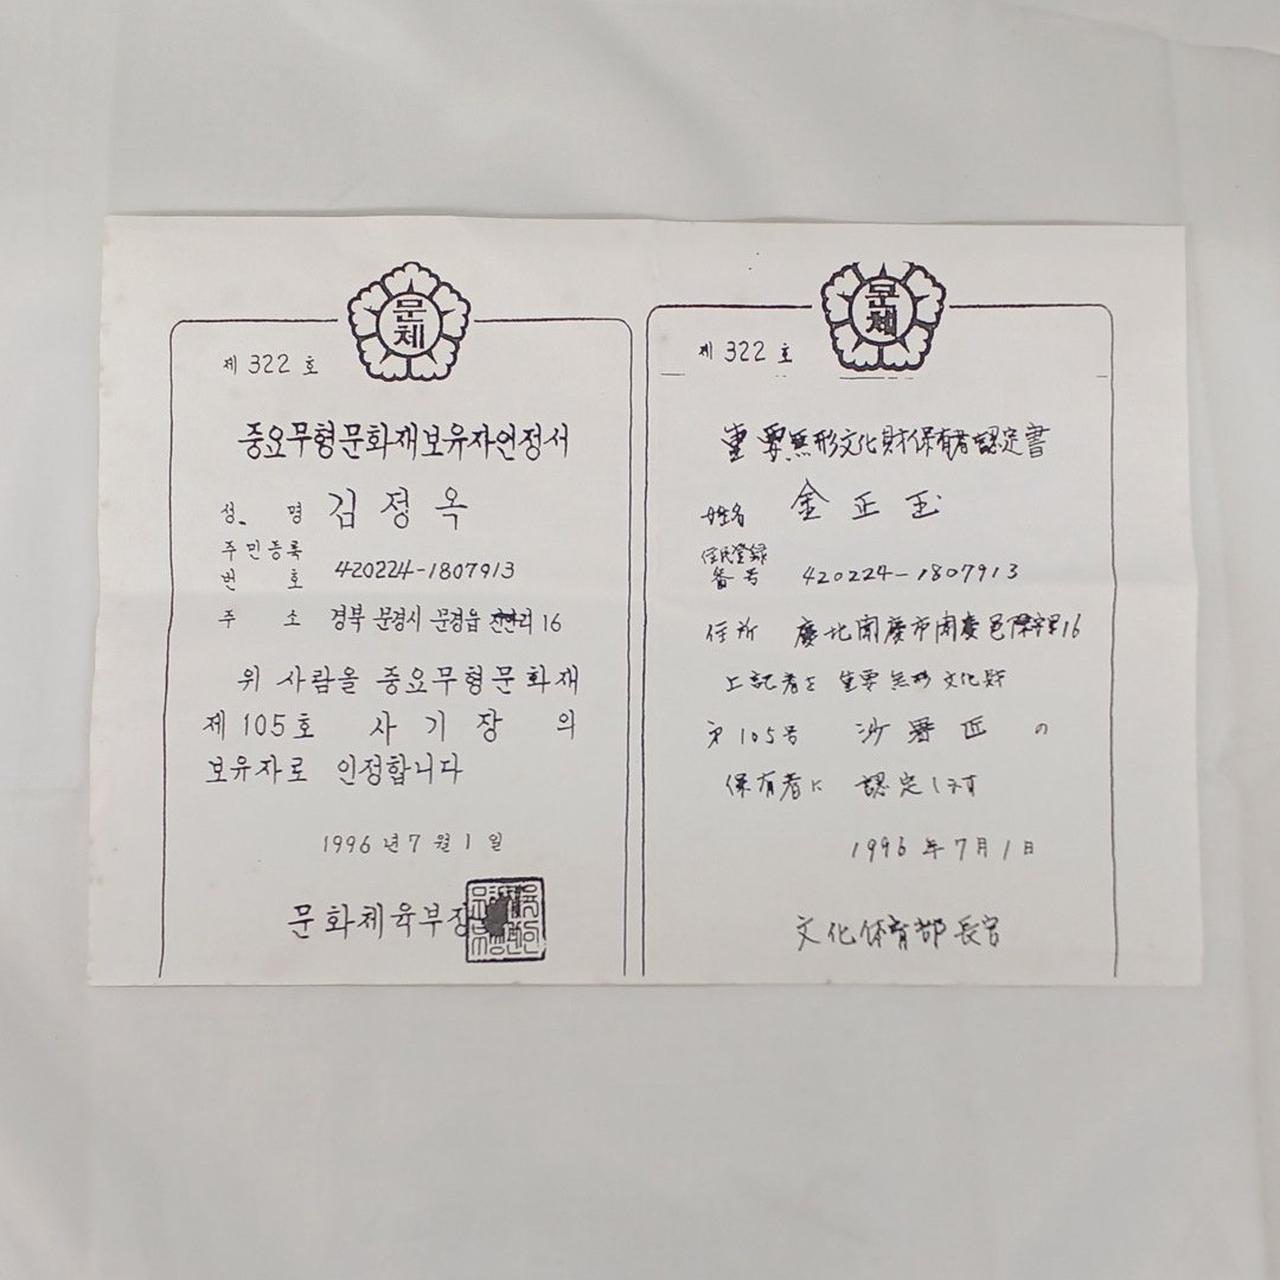 문체
제 322 호
중요무형문화재보유자인정서
성 명 김 정 옥
주민등록
번 호 420224-1807913
주 소 경북 문경시 문경읍 진안리 16
위 사람을 중요무형문화재
제 105호 사 기 장 의
보유자로 인정합니다
1996 년 7 월 1 일
문화체육부장
문체
제 322 호
重要無形文化財保有者認定書
姓名 金 正 玉
住民登録
番号 420224-1807913
住所 慶北聞慶市聞慶邑陳安里16
上記者を 重要無形文化財
第105号 沙器匠 の
保有者に 認定します
1996 年 7月 1 日
文化体育部長官